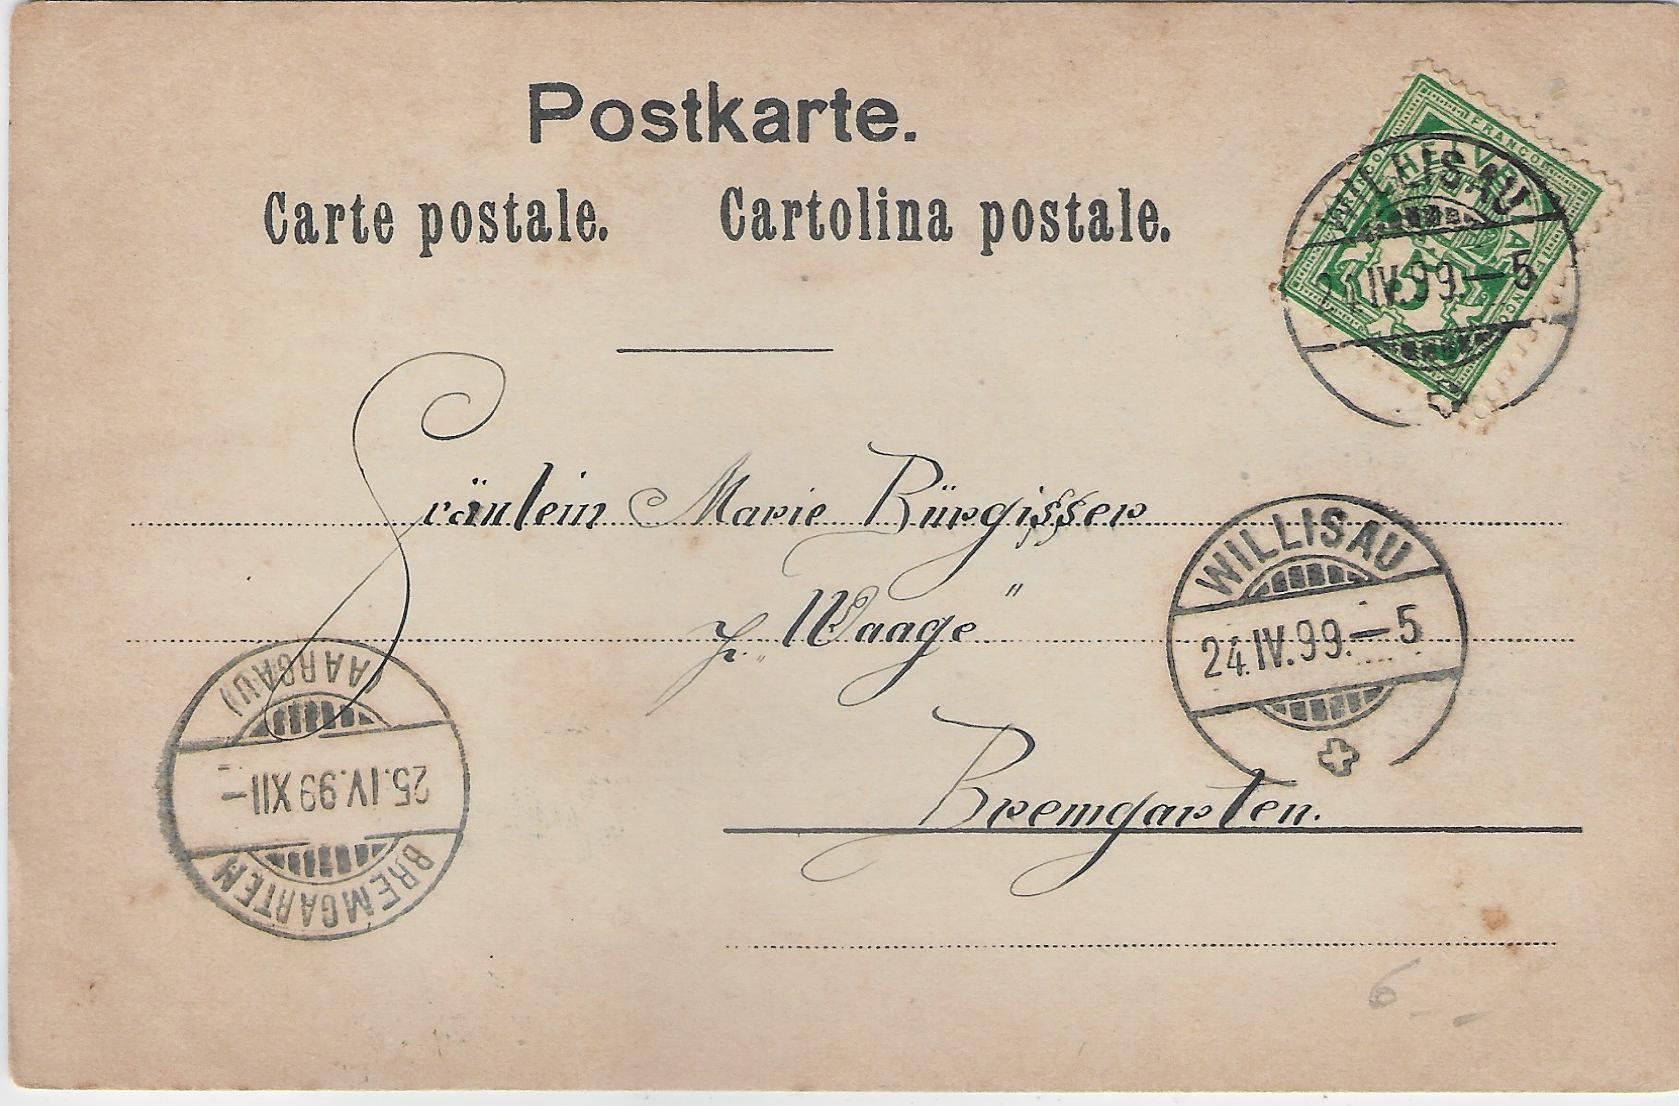 Postkarte.
Carte postale. Cartolina postale.
HELVETIA
FRANCO
5
WILLISAU
24.IV.99.—5
Fräulein Marie Bürgisser
z. „Waage"
Bremgarten.
WILLISAU
24.IV.99.—5
(AARGAU)
25.IV.99 XII—
BREMGARTEN
6.--